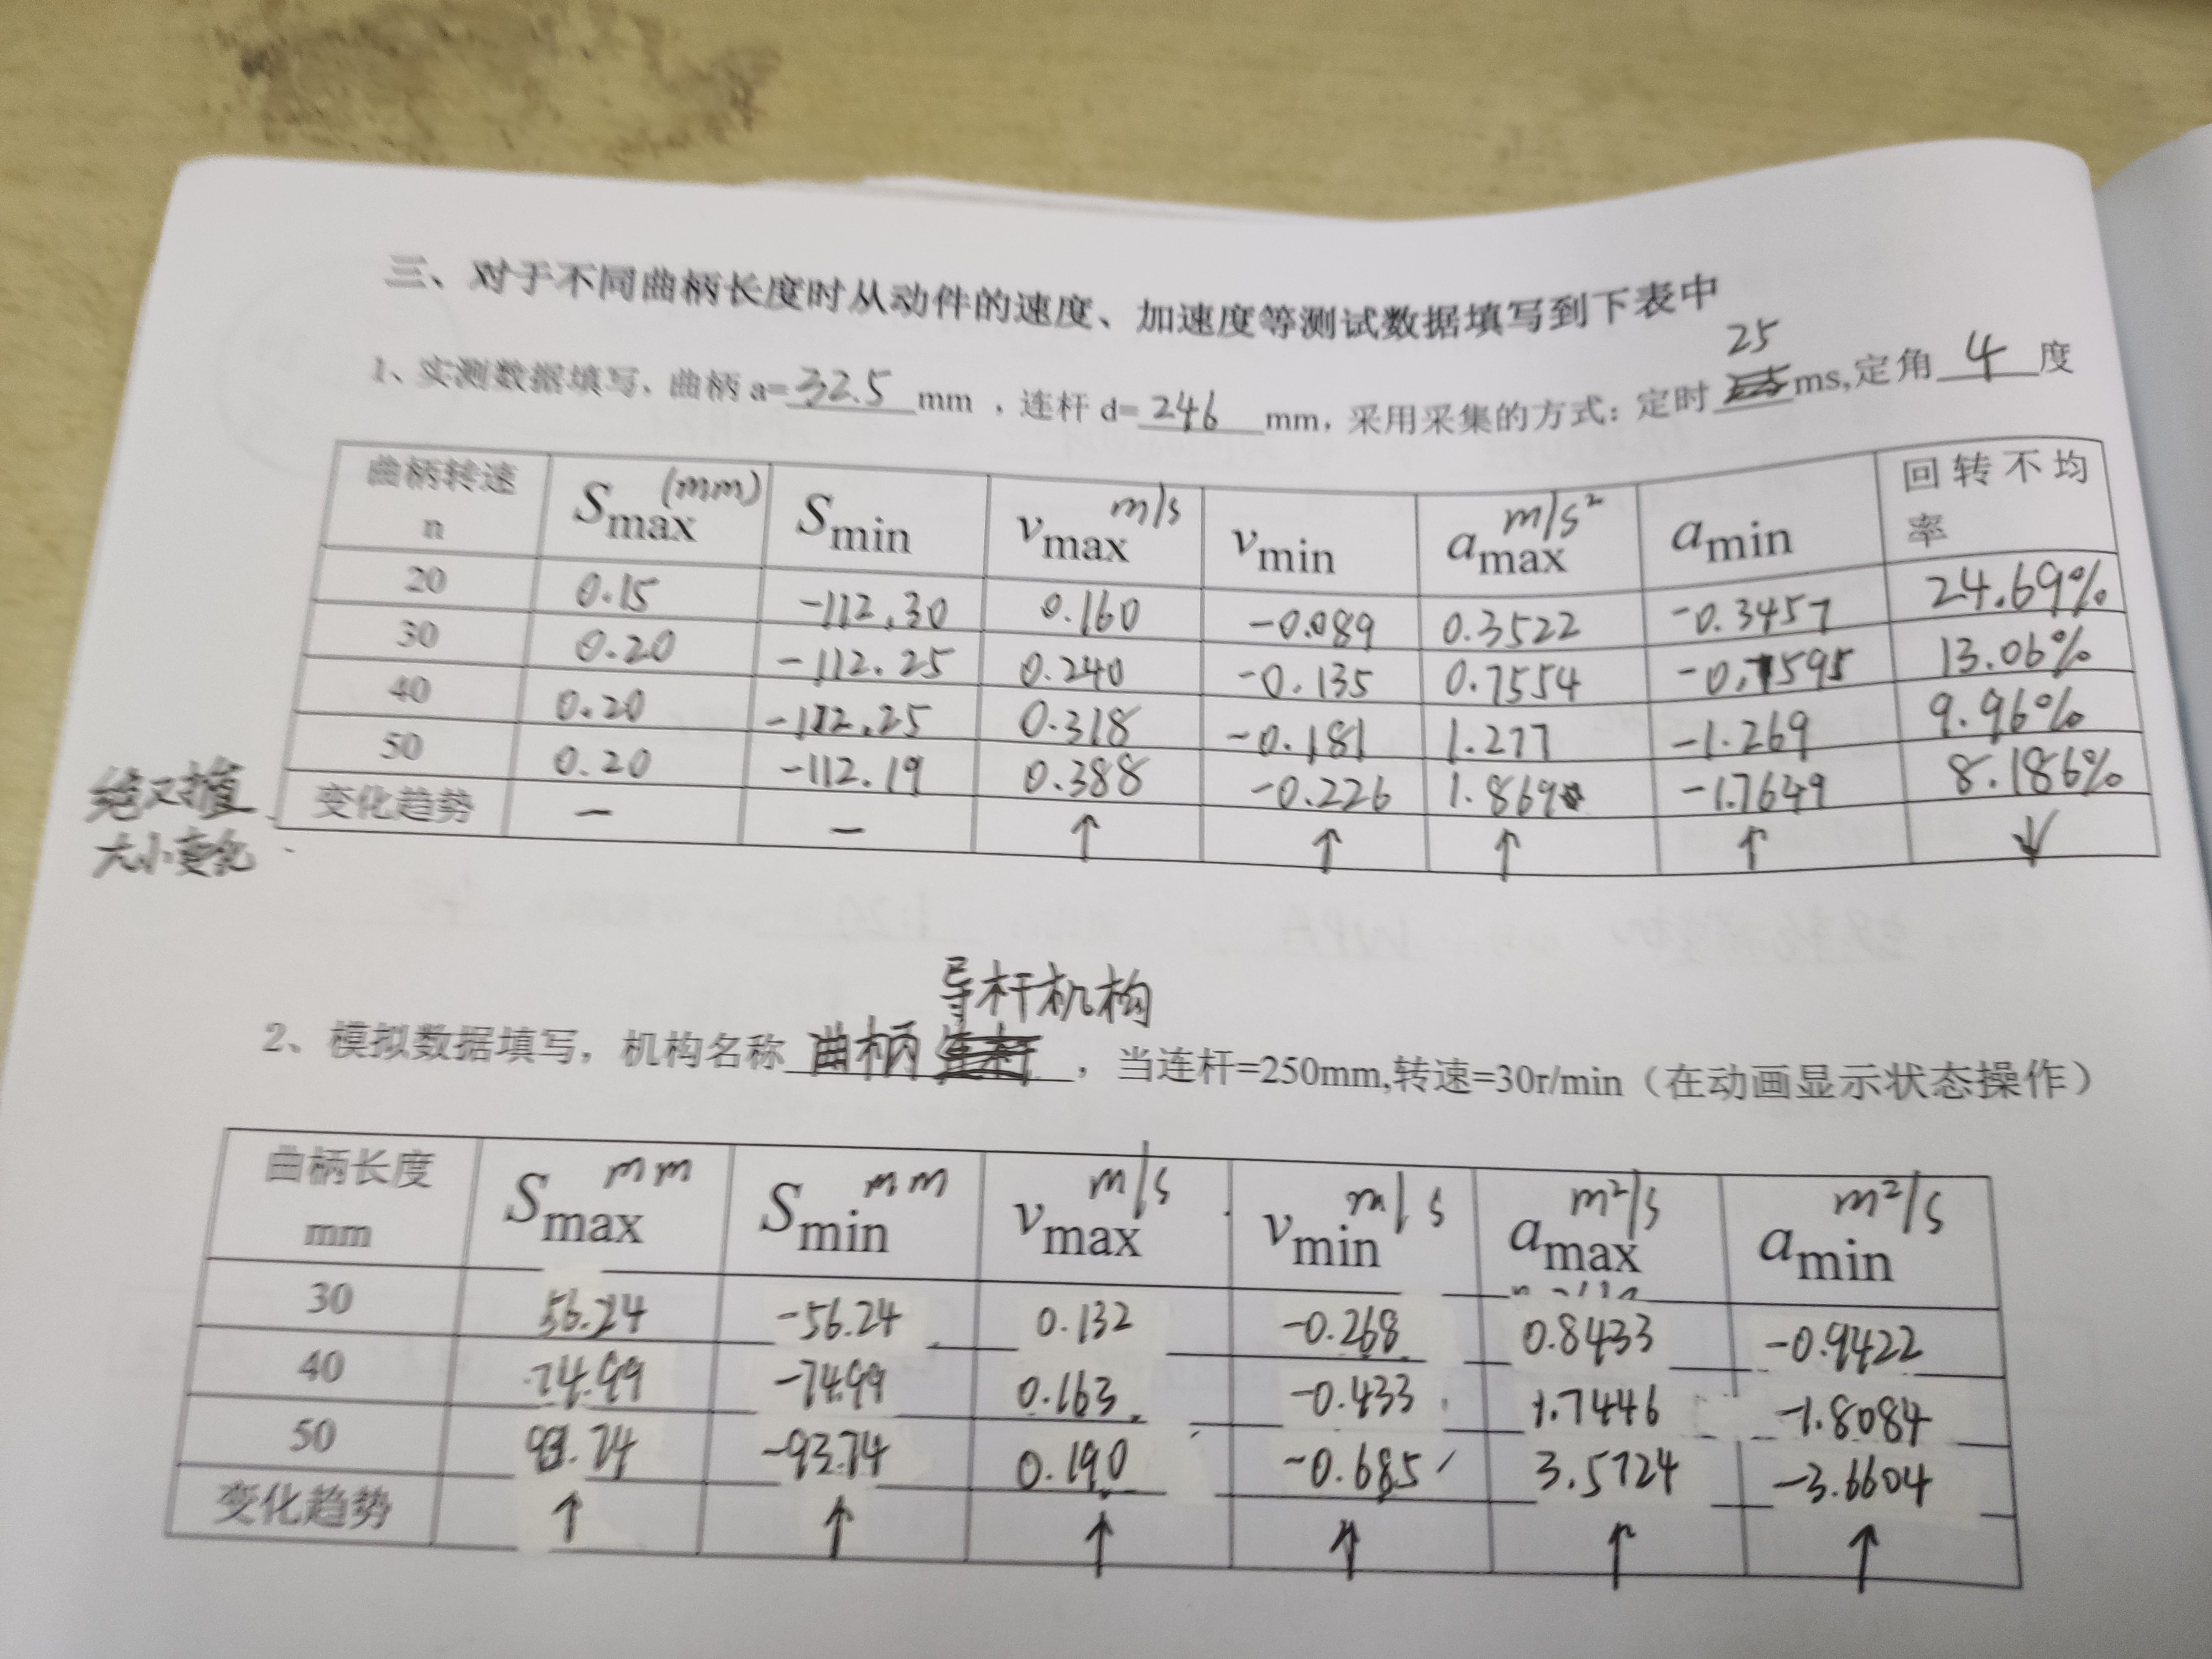 三、对于不同曲柄长度时从动件的速度、加速度等测试数据填写到下表中
1、实测数据填写、曲柄 a=32.5mm，连杆 d=246mm，采用采集的方式：定时25ms,定角4度
曲柄转速 n Smax (mm) Smin vmax m/s vmin amax m/s² amin 回转不均率
20 0.15 -112.30 0.160 -0.089 0.3522 -0.3457 24.69%
30 0.20 -112.25 0.240 -0.135 0.7554 -0.7595 13.06%
40 0.20 -112.25 0.318 -0.181 1.277 -1.269 9.96%
50 0.20 -112.19 0.388 -0.226 1.869 -1.7649 8.186%
变化趋势 — — ↑ ↑ ↑ ↑ ↓
绝对值
大小变化
2、模拟数据填写，机构名称 曲柄 导杆机构，当连杆=250mm,转速=30r/min（在动画显示状态操作）
曲柄长度 mm Smax mm Smin mm vmax m/s vmin m/s amax m²/s amin m²/s
30 56.24 -56.24 0.132 -0.268 0.8433 -0.9422
40 74.99 -74.99 0.163 -0.433 1.7446 -1.8084
50 93.74 -93.74 0.190 -0.685 3.5724 -3.6604
变化趋势 ↑ ↑ ↑ ↑ ↑ ↑